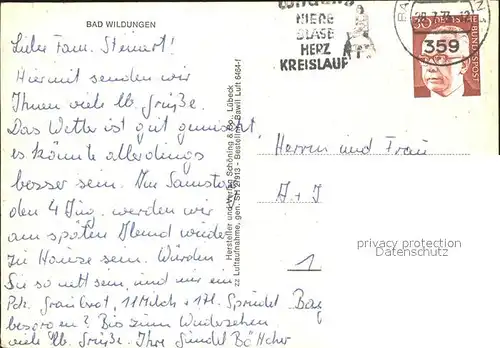 BAD WILDUNGEN
Liebe Fam. Steinert!
Hiermit senden wir
Ihnen viele lb. Grüße.
Das Wetter ist gut gemischt,
es könnte allerdings
besser sein. Am Samstag
den 4 Aug. werden wir
am späten Abend wieder
zu Hause sein. Würden
Sie so nett sein, und mir ein
Pck. Graubrot, 1 l Milch + 1 Fl. Sprudel
besorgen? Bis zum Wiedersehen
viele lb. Grüße. Ihre
Hersteller und Verlag Schöning & Co., Lübeck
gen. SH 2/913 - Bestellnr. Bawil Luft 6464-f
NIERE
BLASE
HERZ
KREISLAUF
359
30 DEUTSCHE
BUNDESPOST
Herrn und Frau
privacy protection
Datenschutz
1